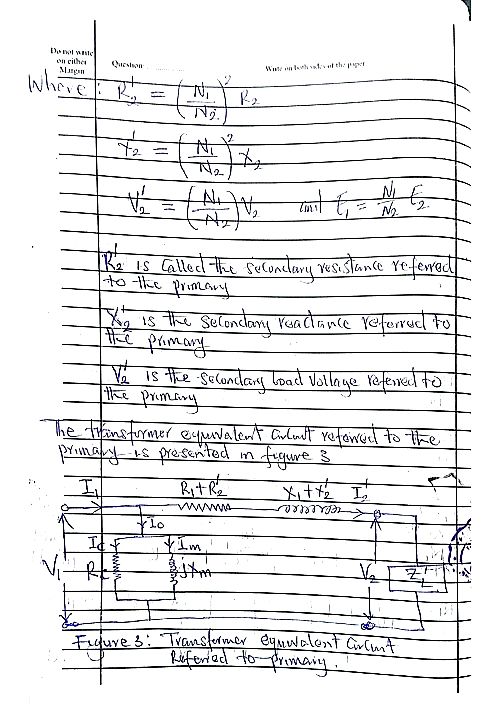 Do not write
on either
Margin
Question
Write on both sides of the paper
Where: R₂' = (N₁/N₂)² R₂
X₂' = (N₁/N₂)² X₂
V₂' = (N₁/N₂) V₂ and E₁ = N₁/N₂ E₂
R₂' is called the secondary resistance referred
to the primary
X₂' is the secondary reactance referred to
the primary
V₂' is the secondary load voltage referred to
the primary
The transformer equivalent circuit referred to the
primary is presented in figure 3
I₁ R₁+R₂' X₁+X₂' I₂'
I₀
Ic Im
V₁ Rc jXm V₂ ZL'
Figure 3: Transformer equivalent Circuit
Referred to primary.